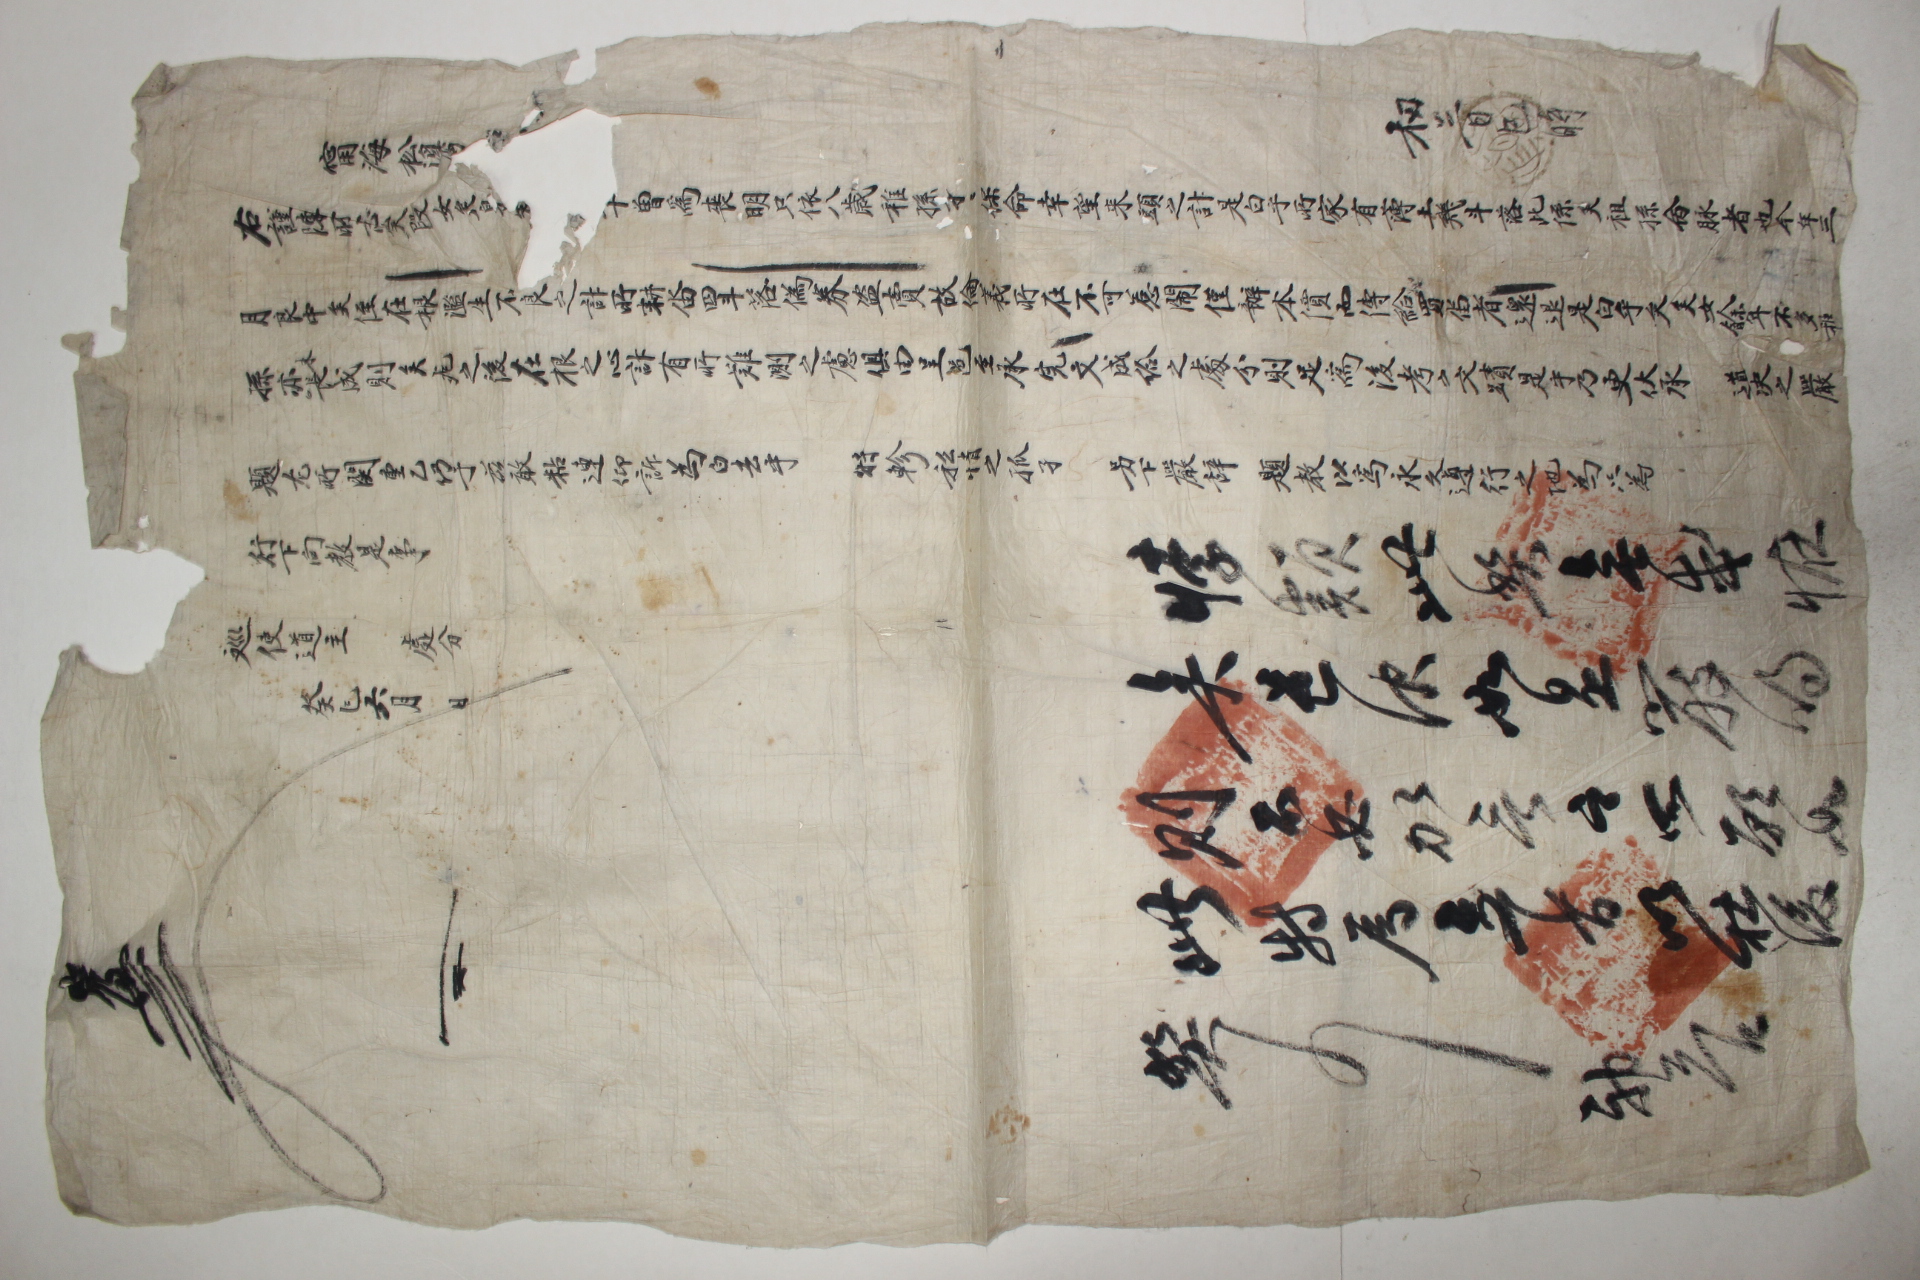 甯海松
右謹陳所志矣段女矣身 十曾爲喪明只依八歲稚孫寸寸保命幸望來頭之計是白乎所家有薄土幾斗落此係矣祖孫命脉者也今年三
月良中矣侄在根濫生不良之計所耕畓四斗落僞券盜賣故倫義所在不可惹鬧僅辦本價而傳給買畓者還退是白乎矣矣女餘年不多稚
孫亦未長成則矣死之後在根之心計有所難測之慮俱由呈邑至承完文成給之處分則足爲後考之文蹟是乎乃更伏承 道決之嚴
題尤所關重乙仍于玆敢粘連仰訴爲白去乎 特軫私情之孤孑 另下嚴辭 題敎以爲永久遵行之地爲只爲
行下向敎是事
巡使道主 處分
癸巳六月 日
初三日 時
悖類此弊無或恠
矣邑決如是嚴明
則不必加言之所願如
此特爲立旨以杜後
弊